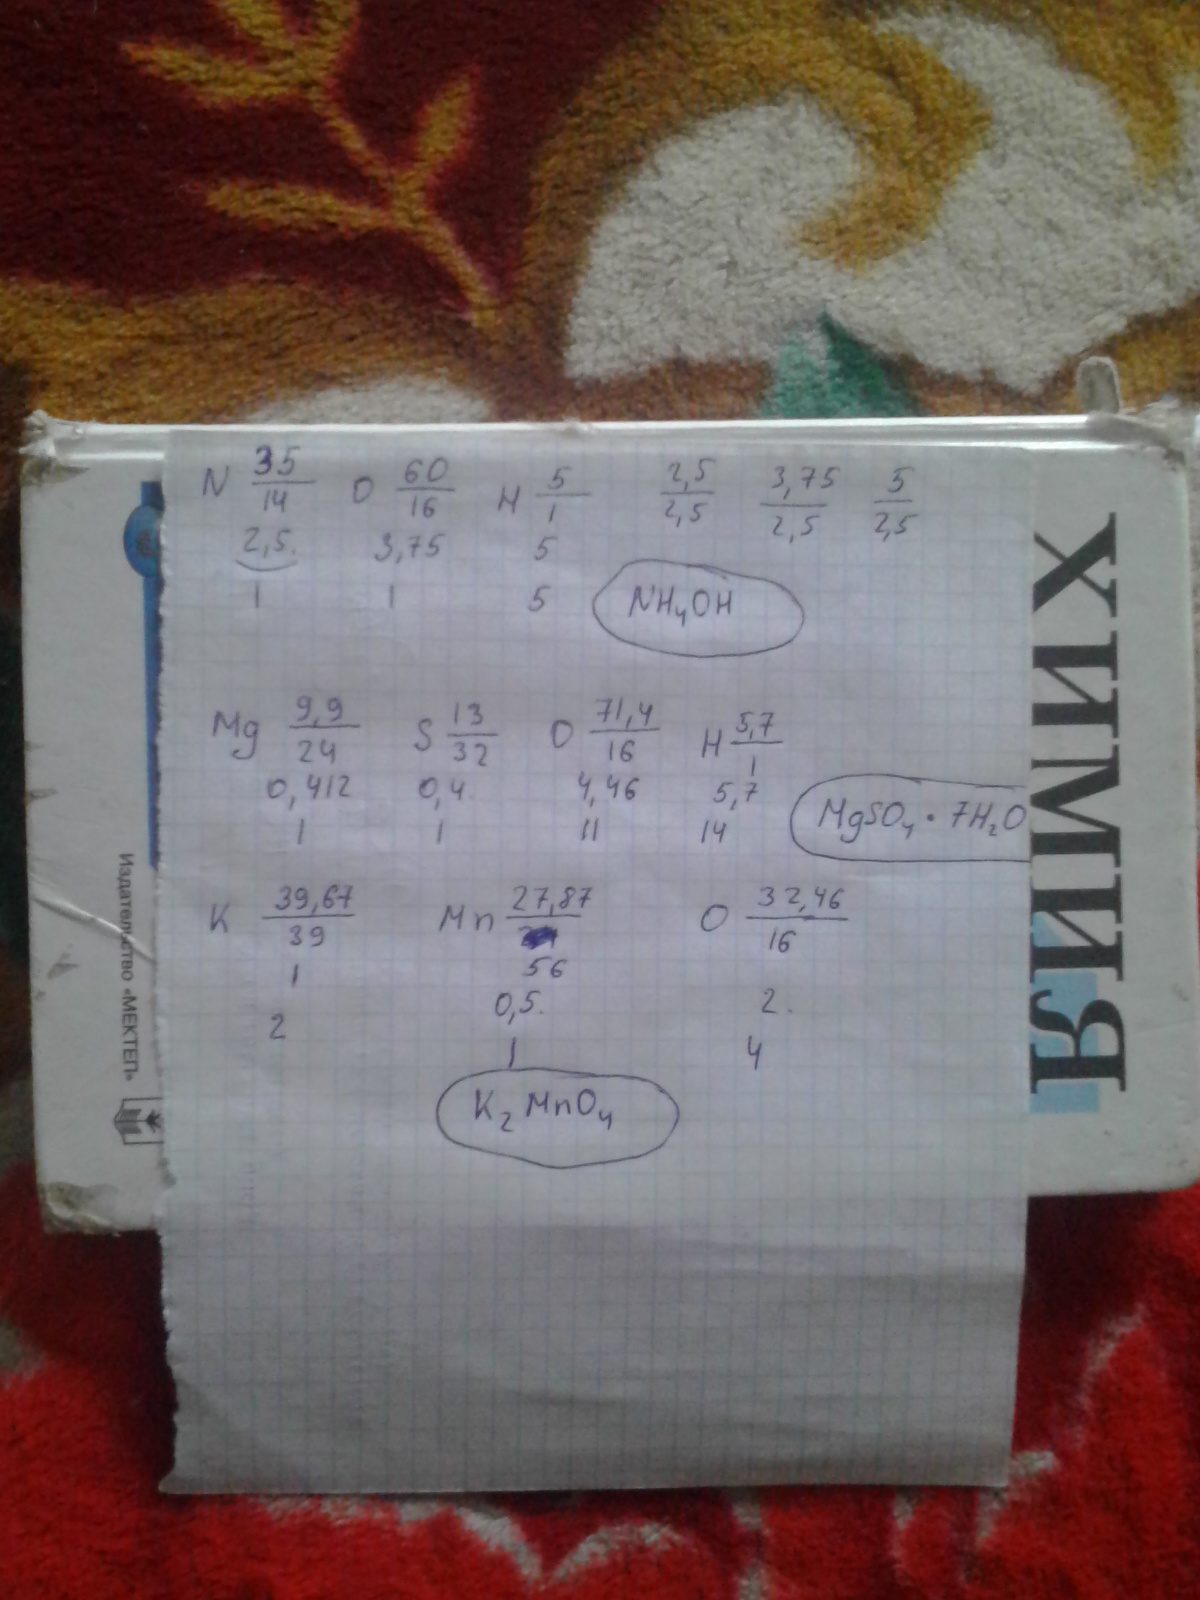 N 35/14 O 60/16 H 5/1 2,5/2,5 3,75/2,5 5/2,5
2,5. 3,75 5
1 1 5 NH₄OH
Mg 9,9/24 S 13/32 O 71,4/16 H 5,7/1
0,412 0,4 4,46 5,7
1 1 11 14 MgSO₄ · 7H₂O
K 39,67/39 Mn 27,87 O 32,46/16
1 56
2 0,5. 2.
1 4
K₂MnO₄
ХИМИЯ
Издательство «МЕКТЕП»